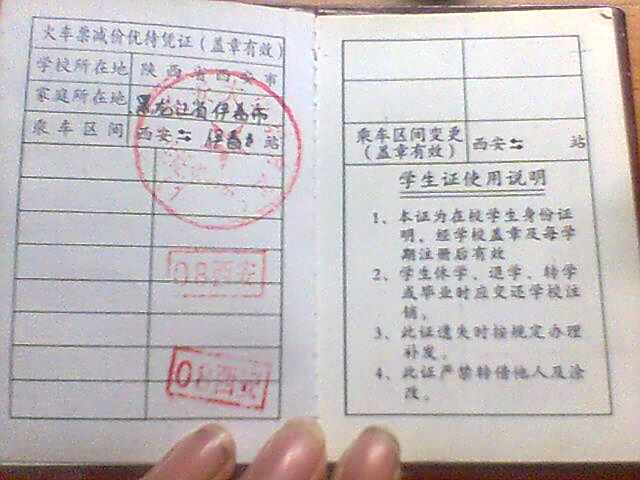 火车票减价优待凭证(盖章有效)
学校所在地 陕西省西安市
家庭所在地 黑龙江省伊春市
乘车区间 西安⇆伊春站
08西安
08西安
乘车区间变更
(盖章有效)
西安⇆ 站
学生证使用说明
1、本证为在校学生身份证
明、经学校盖章及每学
期注册后有效
2、学生休学、退学、转学
或毕业时应交还学校注
销。
3、此证遗失时按规定办理
补发。
4、此证严禁转借他人及涂
改。